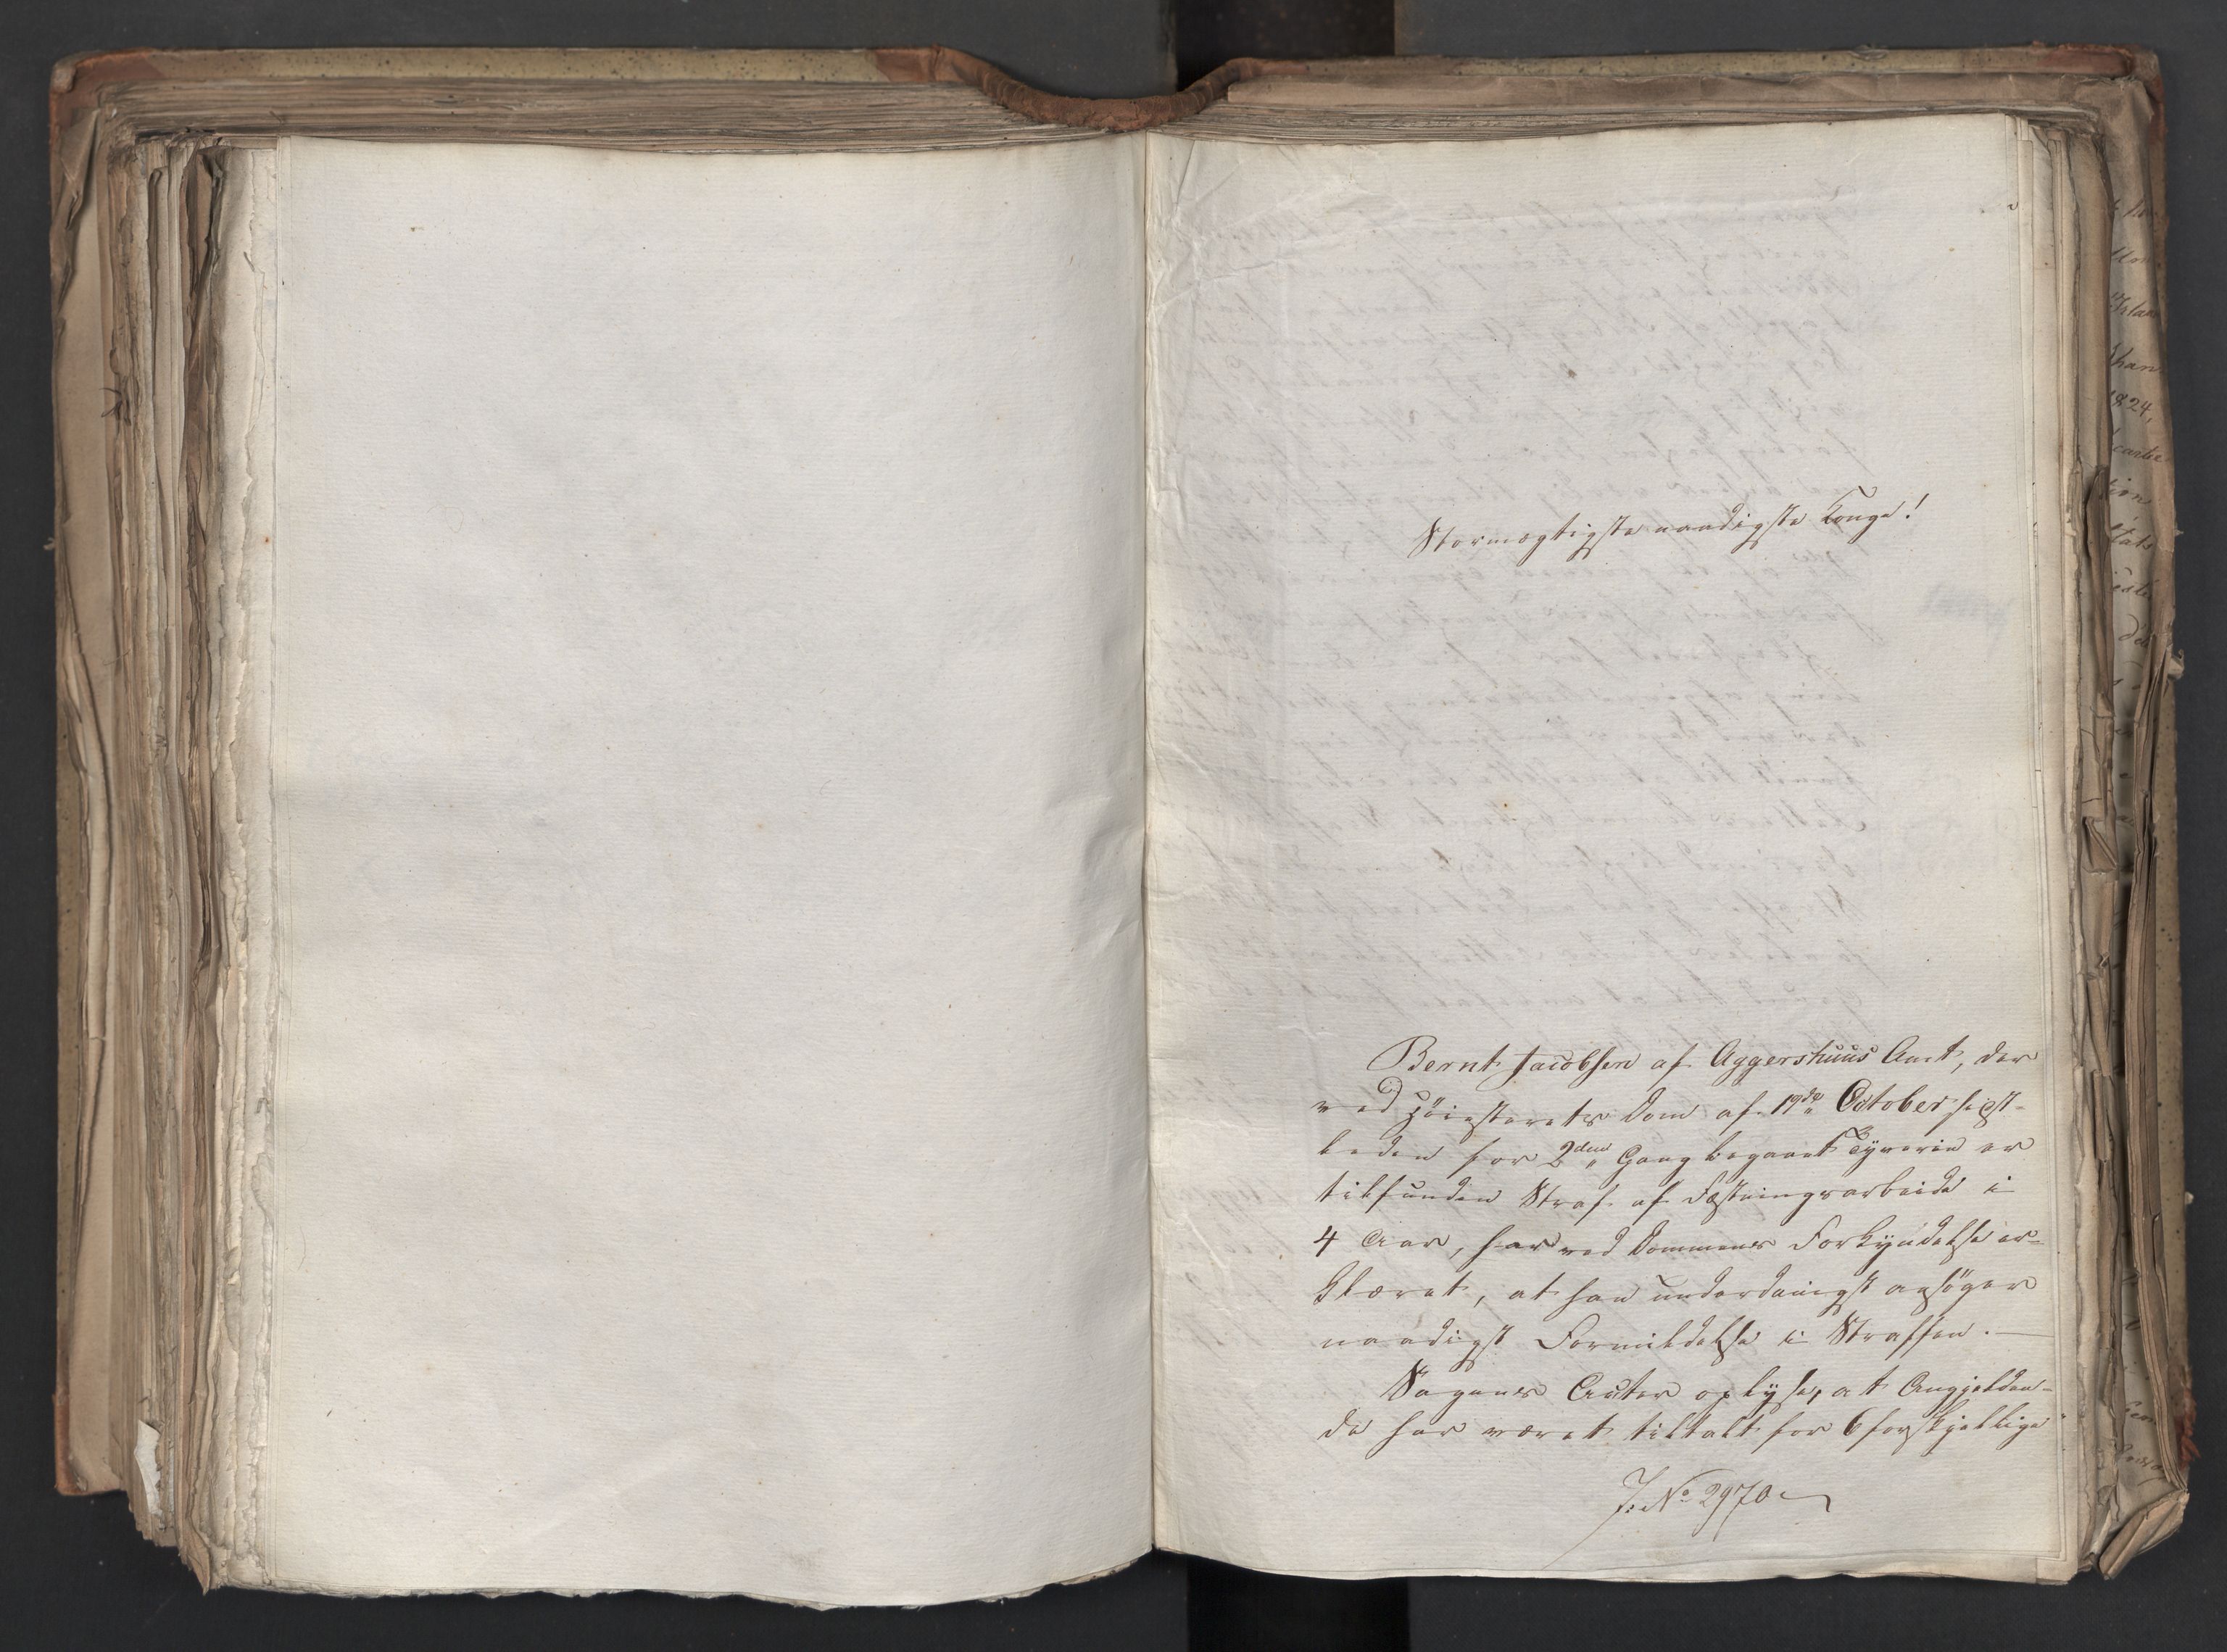 Stormægtigste naadigste Konge!
Bernt Jacobsen af Aggershuus Amt, der
ved Höiesterets Dom af 19de October sidst-
leden for 2den Gang begaaet Tyverie er
tilfunden Straf af Fæstningsarbeide i
4 Aar, har ved Dommens Forkyndelse er-
klæret, at han underdanigst ansöger
naadigst Formildelse i Straffen. —
Sagens Acter oplyse, at Angjelden-
de har været tiltalt for 6 forskjellige
J: No 2970
1824,